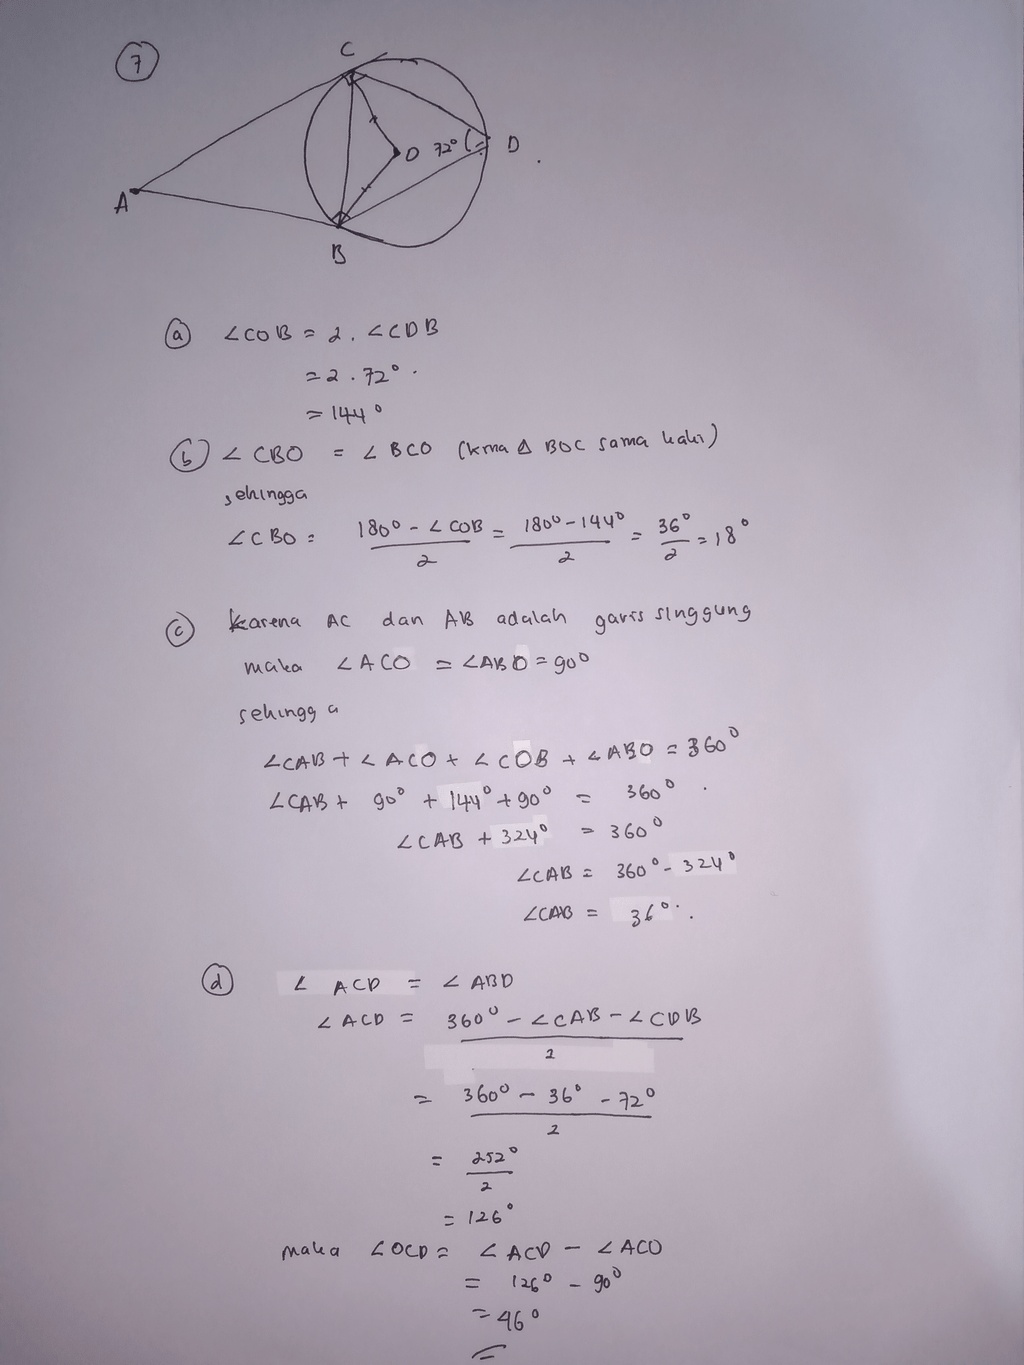 7
C
O 72° D
A
B
a ∠COB = 2. ∠CDB
= 2 . 72° .
= 144°
b ∠ CBO = ∠ BCO (krna Δ BOC sama kaki)
sehingga
∠CBO = 180° - ∠ COB / 2 = 180° - 144° / 2 = 36° / 2 = 18°
c Karena AC dan AB adalah garis singgung
maka ∠ACO = ∠ABO = 90°
sehingga
∠CAB + ∠ACO + ∠COB + ∠ABO = 360°
∠CAB + 90° + 144° + 90° = 360° .
∠CAB + 324° = 360°
∠CAB = 360° - 324°
∠CAB = 36° .
d ∠ ACD = ∠ ABD
∠ ACD = 360° - ∠CAB - ∠CDB / 2
= 360° - 36° - 72° / 2
= 252° / 2
= 126°
maka ∠OCD = ∠ ACD - ∠ACO
= 126° - 90°
= 46°